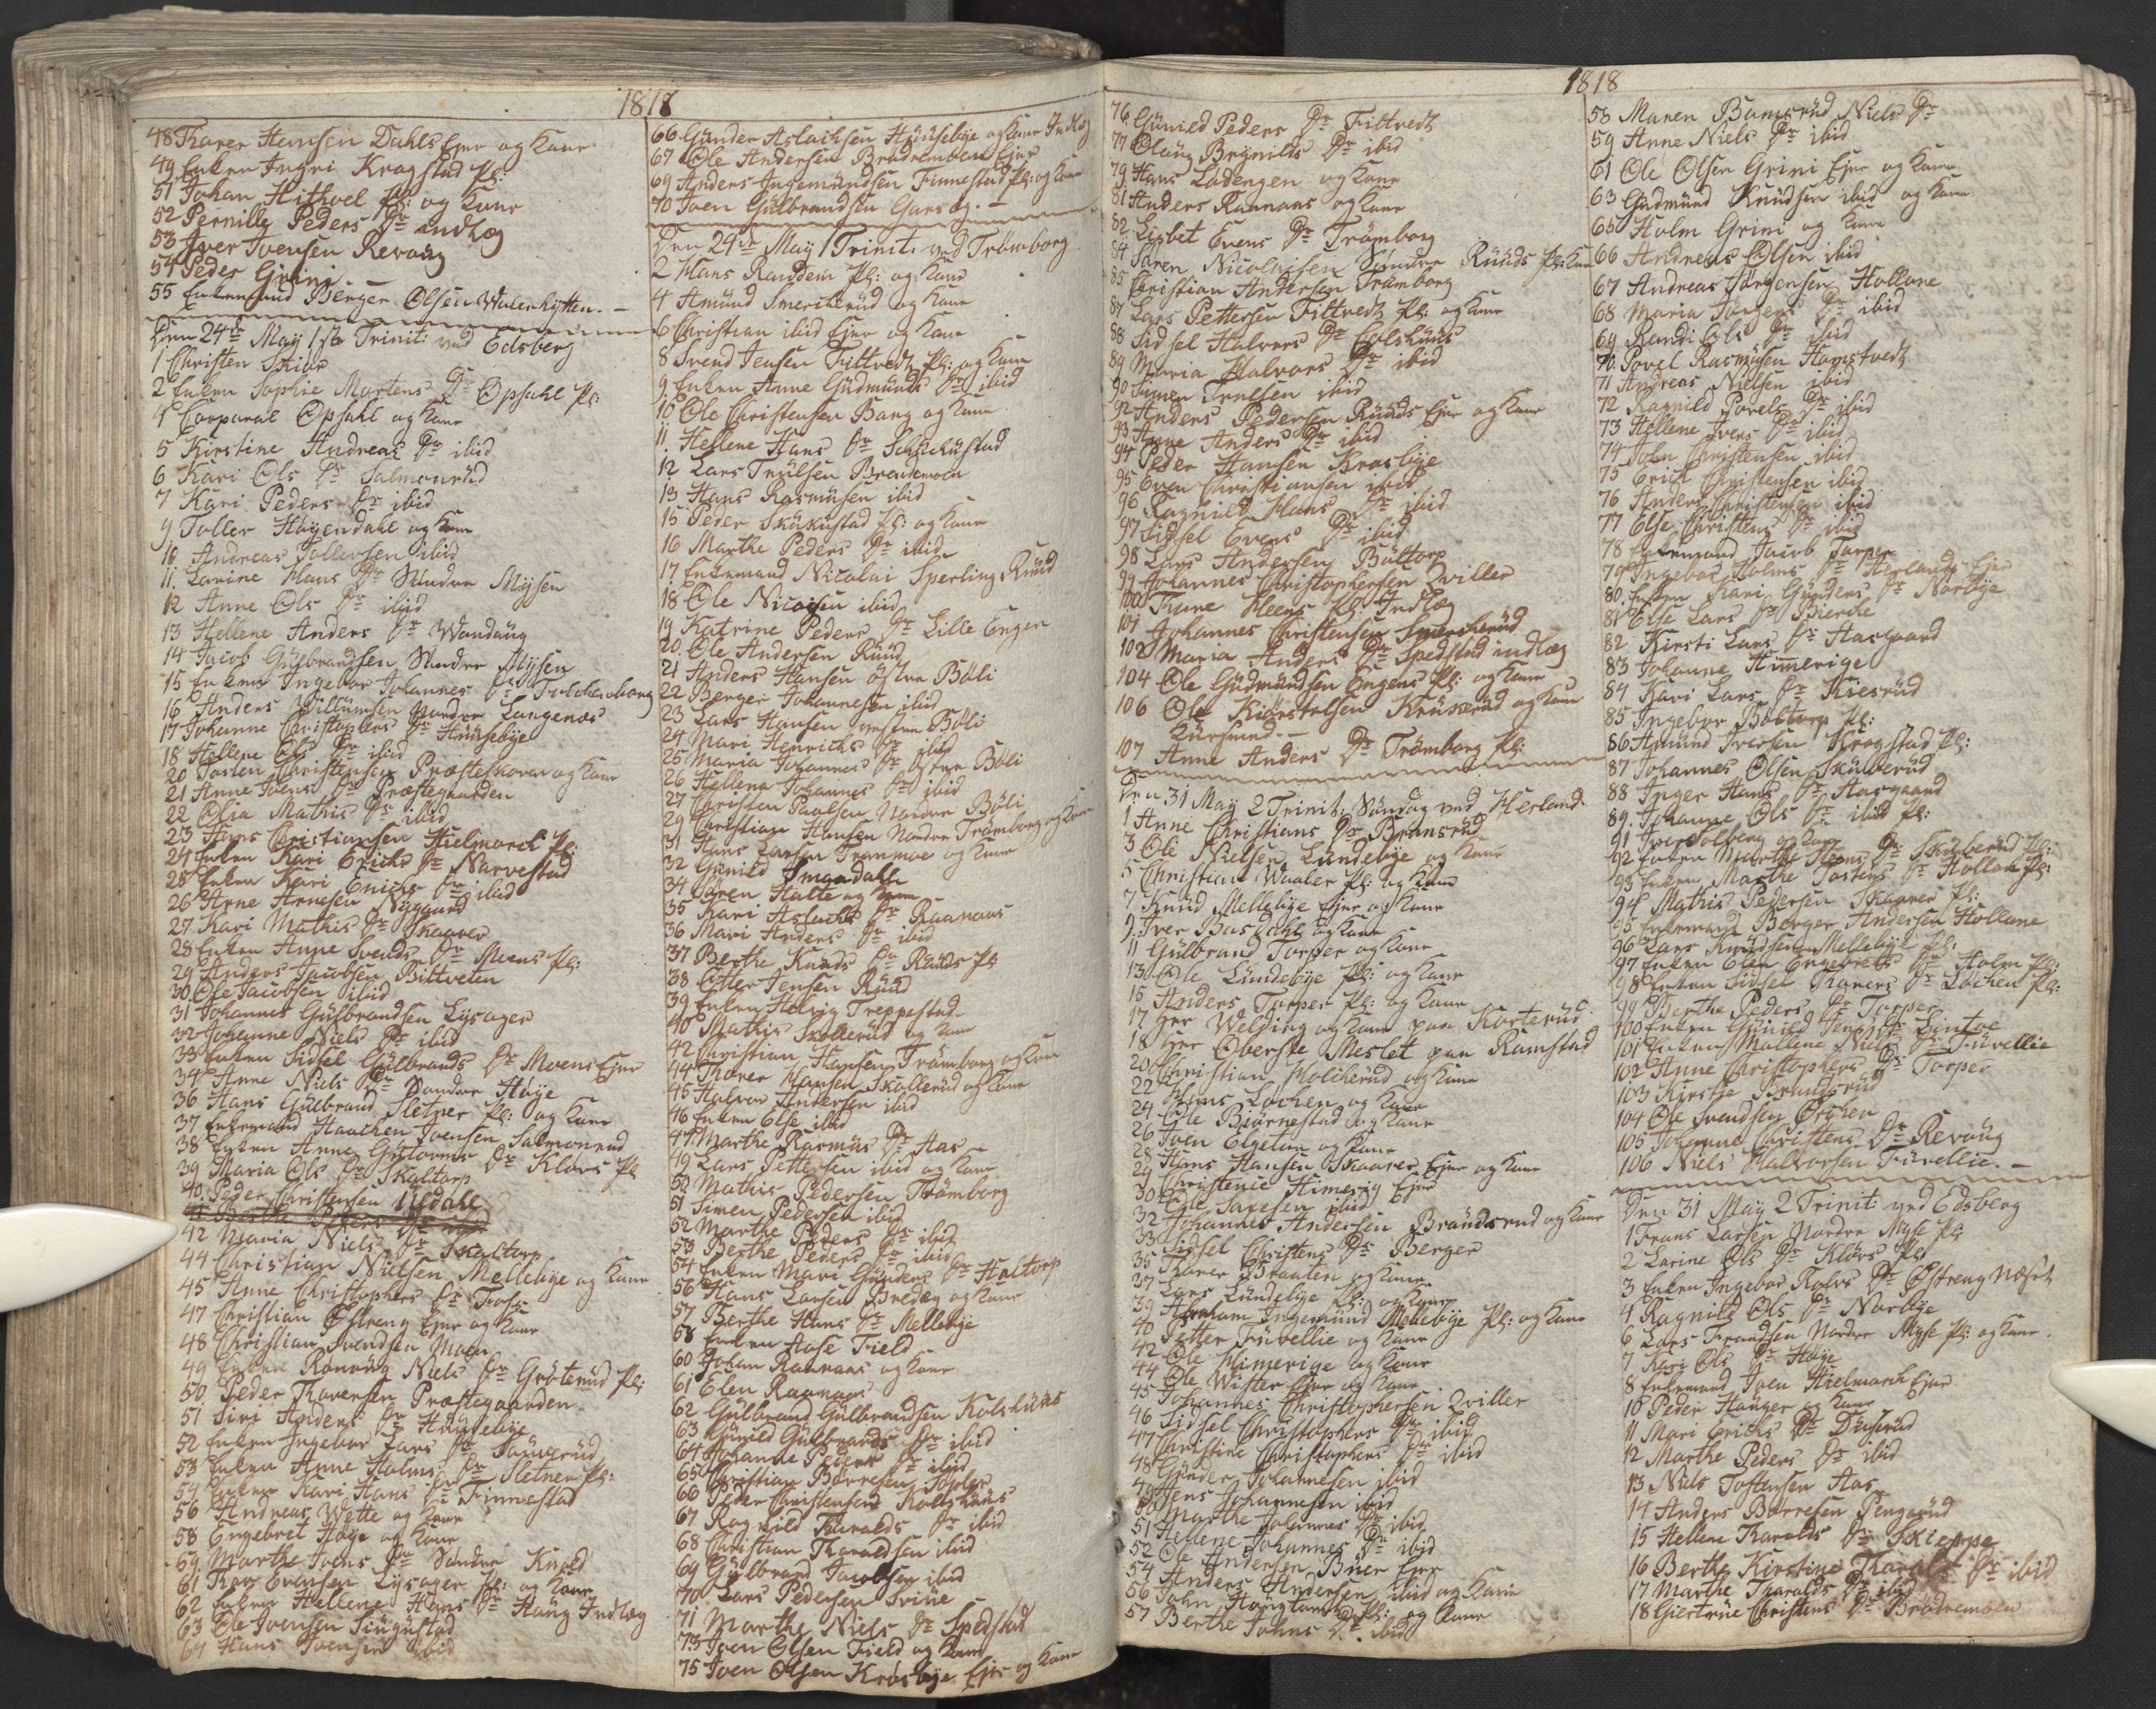 1818
48 Tharer Hansen Dahls Ejer og Kone
49 Enken Ingri Kragstad Pl:
51 Johan Hithvel Pl: og Kone
52 Pernille Peders Dr indlæg
53 Iver Ivensen Revoüg
54 Peder Grini
55 Enkemand Berger Olsen
Den 24de May 1ste Trinit: ved Edsberg
1 Christen Skiør
2 Enken Sophie Mortens Dr Opsahl Pl:
4 Corporal Opsahl og Kone
5 Kirstine Andreas Dr ibid
6 Kari Ols Dr Salmonrüd
7 Kari Peders Dr ibid
9 Toller Høyendahl og Kone
10 Andreas Tollersen ibid
11 Larine Hans Dr Søndre Mÿsen
12 Anne Ols Dr ibid
13 Hellene Anders Dr
14 Jacob Gülbrandsen Søndre Mÿsen
15 Enken Ingebor Johannes Dr
16 Anders Willumsen Nordre Langenæs
17 Johanne Christophers Dr Hüüsebÿe
18 Hellene Ols Dr ibid
20 Tosten Christensen Præsteskoven og Kone
21 Anne Ivens Dr Præstegaarden
22 Olia Mathis Dr ibid
23 Hans Christiansen Hielmarck Pl:
24 Enken Kari Erichs Dr Narvestad
25 Enken Kari Erichs Dr ibid
26 Arne Arnesen Nÿgaard
27 Kari Mathis Dr Skaarer
28 Enken Anne Svends Dr Moens Pl:
29 Anders Jacobsen Bittveten
30 Ole Jacobsen ibid
31 Johannes Gülbrandsen Lÿsager
32 Johanne Niels Dr ibid
33 Enken Sidsel Gülbrands Dr Moens Ejer
34 Anne Niels Dr Søndre Høÿe
36 Hans Gülbrand Sletner Pl: og Kone
37 Enkemand Haachen Ivensen Salmonrud
38 Enken Anne Dr Kløvs Pl
39 Maria Ols Dr Skaltorp
40 Peder Christensen Ildahl
42 Maria Niels Dr Skaltorp
44 Christian Nielsen Mellebÿe og Kone
45 Anne Christophers Dr
47 Christian Østreng Ejer og Kone
48 Christian Svendsen Moen
49 Enken Rønnaüg Niels Dr Grøterüd Pl:
50 Peder Tharersen Præstegaarden
51 Siri Anders Dr Hüüsebÿe
52 Enken Ingebor Lars Dr
53 Enken Anne Holms Dr Sletner Pl:
54 Enken Kari Hans Dr Finnestad
56 Andreas Wette og Kone
58 Engebret Høÿe og Kone
59 Marthe Ivens Dr Søndre Knold
61 Thor Evensen Lÿsager Pl: og Kone
62 Enken Hellene Hans Dr Haüg Indlæg
63 Ole Ivensen
64 Hans Ivensen ibid
66 Günder Aslachsen Hüüsebÿe og Kone Indlæg
67 Ole Andersen Brødremoen Ejer
69 Anders Ingemündsen Finnestad Pl: og Kone
70 Iven Gülbrandsen
Den 24de Maÿ 1 Trinit: ved Trømborg
2 Hans Randem Pl: og Kone
4 Amund Smerckerud og Kone
6 Christian ibid Ejer og Kone
8 Svend Jensen Fittvedt Pl: og Kone
9 Enken Anne Güdmünds Dr ibid
10 Ole Christensen Bang og Kone
11 Hellene Hans Dr
12 Lars Trülsen Brendemoen
13 Hans Rasmüsen ibid
15 Peder Skükustad Pl: og Kone
16 Marthe Peders Dr ibid
17 Enkemand Nicolai Sperling Rüüd
18 Ole Nicolisen ibid
19 Katrine Peders Dr Lille Engen
20 Ole Andersen Rüüd
21 Anders Hansen østre Bøli
22 Berger Johannesen ibid
23 Lars Hansen vestre Bøli
24 Mari Henrichs Dr ibid
25 Maria Johannes Dr østre Bøli
26 Hellene Johannes Dr ibid
27 Christen Paulsen Nordre Bøli
29 Christian Hansen Nordre Trømborg og Kone
31 Hans Larsen Tranmoe og Kone
32 Günild Smaadahl
34 Søren Halte og Kone
35 Kari Aslachs Dr Raanaas
36 Mari Anders Dr ibid
37 Berthe Knuds Dr Rüüds Pl
38 Otter Jensen Rüüd
39 Enken Helvig Treppestad
40 Mathis Skollerüd og Kone
42 Christian Hansen Trømborg og Kone
44 Tharer Hansen Skollerüd og Kone
45 Halvor Andersen ibid
46 Enken Else ibid
47 Marthe Rasmüs Dr Aas
49 Lars Pettersen ibid og Kone
50 Mathis Pedersen Trømborg
51 Simen Pedersen ibid
52 Marthe Peders Dr ibid
53 Berthe Peders Dr ibid
54 Enken Mari Günders Dr Haltorp
56 Hans Larsen Bredeg og Kone
57 Berthe Hans Dr Mellebÿe
58 Enken Aase Field
60 Johan Raanaas og Kone
61 Elen Raanaas
62 Gülbrand Gülbrandsen Kolshuüs
63 Günild Gülbrands Dr ibid
64 Johanne Peders Dr ibid
65 Christian Børresen Toplar
66 Peder Christensen Kolshuüs
67 Ragnild Tharalds Dr ibid
68 Christian Tharaldsen ibid
69 Gülbrand Jacobsen ibid
70 Lars Pedersen
71 Marthe Niels Dr Spedstad
73 Iven Olsen Field og Kone
75 Iven Olsen Krosbÿe Ejer og Kone
1818
76 Günild Peders Dr Fittvedt
77 Olaüg Brÿnilds Dr ibid
79 Hans Ladengen og Kone
81 Anders Raanaas og Kone
82 Lisbet Evens Dr Trømborg
84 Søren Nicolaisen Søndre Rüüds Pl: Kone
85 Christian Andersen Trømborg
87 Lars Pettersen Fittvedt Pl: og Kone
88 Sidsel Halvors Dr Colshuüs
89 Maria Halvors Dr ibid
90 Simen Trulsen ibid
92 Anders Pedersen Rüüds Ejer og Kone
93 Anne Anders Dr ibid
94 Peder Hansen Krosbÿe
95 Even Christiansen ibid
96 Ragnild Hans Dr ibid
97 Sidsel Evens Dr ibid
98 Lars Andersen Büttorp
99 Johannes Christophersen Zviller
100 Thune Pl: Indlæg
101 Johannes Christensen Smerckerüd
102 Maria Anders Dr Spedstad indlæg
104 Ole Güdmündsen Engens Pl: og Kone
106 Ole Kierstolsen Krükerud og Kone
Kürsmed
107 Anne Anders Dr Trømborg Pl:
Den 31 Maÿ 2 Trinit: Søndag ved Herland
1 Anne Christians Dr Brænsrüd
3 Ole Nielsen Lundebÿe og Kone
5 Christian Waaler Pl: og Kone
7 Knud Mellebÿe Ejer og Kone
9 Iver Basdahl og Kone
11 Gülbrand Torper og Kone
13 Ole Lündebÿe Pl: og Kone
15 Anders Torper Pl: og Kone
17 Herr Welding og Kone paa Korterüd
18 Herr Oberste Meslet paa Ramstad
20 Christian Holcherud og Kone
22 Hans Lochen og Kone
24 Ole Biørnestad og Kone
26 Iven Elgetun og Kone
28 Hans Hansen Skaarer Ejer og Kone
29 Christenie Himerig Ejer
30 Ole ibid
32 Johannes Andersen Brandsrud og Kone
33 Sidsel Christens Dr Berger
35 Tharer Braaten og Kone
37 Lars Lündebÿe Pl: og Kone
39 Abraham Ingemünd Mellebÿe Pl: og Kone
40 Petter Fürellie og Kone
42 Ole Himerige og Kone
44 Ole Wister Ejer og Kone
45 Johannes Christophersen Zviller
46 Sidsel Christophers Dr ibid
47 Christine Christophers Dr ibid
48 Günder Johannesen ibid
49 Jens Johannesen ibid
50 Marthe Johannes Dr ibid
51 Hellene Johannes Dr ibid
52 Ole Andersen Büer Ejer
54 Anders Andersen ibid og Kone
56 John Haügtun Pl: og Kone
57 Berthe Johns Dr ibid
58 Maren Bamsrüd Niels Dr
59 Anne Niels Dr ibid
61 Ole Olsen Grini Ejer og Kone
63 Güdmünd Knüdsen ibid og Kone
65 Holm Grini og Kone
66 Andreas Olsen ibid
67 Andreas Jørgensen Hollane
68 Maria Jørgens Dr ibid
69 Randi Ols Dr ibid
70 Povel Rasmüsen Hamstvedt
71 Andreas Nielsen ibid
72 Ragnild Povels Dr ibid
73 Hellene Ivers Dr ibid
74 John Christensen ibid
75 Erich Christensen ibid
76 Anders Christensen ibid
77 Else Christens Dr ibid
78 Enkemand Jacob Torper
79 Ingebor Holms Dr Herlands Ejer
80 Enken Kari Günders Dr Norbÿe
81 Else Lars Dr
82 Kirsti Lars Dr Haagaard
83 Johanne Himerige
84 Kari Lars Dr Kiesrüd
85 Ingebor Boltorp Pl:
86 Amünd Iversen Kragstad Pl:
87 Johannes Olsen Sküberüd
88 Inger Hans Dr Haagaard
89 Johanne Ols Dr ibid Pl:
91 Iver Solberg og Kone
92 Enken Marthe Dr Sküberüd Pl:
93 Enken Marthe Tostens Dr Hollane Pl:
94 Mathis Pedersen Skaarer Pl:
95 Enkemand Berger Andersen Hollane
96 Lars Knüdsen Mellebÿe Pl:
97 Enken Elen Engebrets Dr Holm Pl:
98 Enken Sidsel Tharers Dr Lochen Pl:
99 Berthe Peders Dr Torper
100 Enken Günild Jens Dr
101 Enken Mallene Niels Dr Fürellie
102 Anne Christophers Dr Torper
103 Kirstje
104 Ole Svendsen
105 Johanne Christens Dr Revoüg
106 Niels Halvorsen Fürellie
Den 31 May 2 Trinit: ved Edsberg
1 Frans Larsen Nordre Mÿse Pl:
2 Larine Ols Dr Kløvs Pl
3 Enken Ingebor Rolvs Dr Østreng Næset
4 Ragnild Ols Dr Norbÿe
6 Lars Frandsen Nordre Mÿse Pl: og Kone
7 Kari Ols Dr Høÿe
8 Enkemand Iven Hielmarck Ejer
10 Peder Haüger og Kone
11 Mari Erichs Dr Düserüd
12 Marthe Peders Dr ibid
13 Niels Tostensen Aas
14 Anders Børresen Pengerüd
15 Hellene Tharalds Dr Skieppe
16 Berthe Kirstine Tharalds Dr ibid
17 Marthe Tharalds Dr ibid
18 Giertrüe Christens Dr Brødremoen